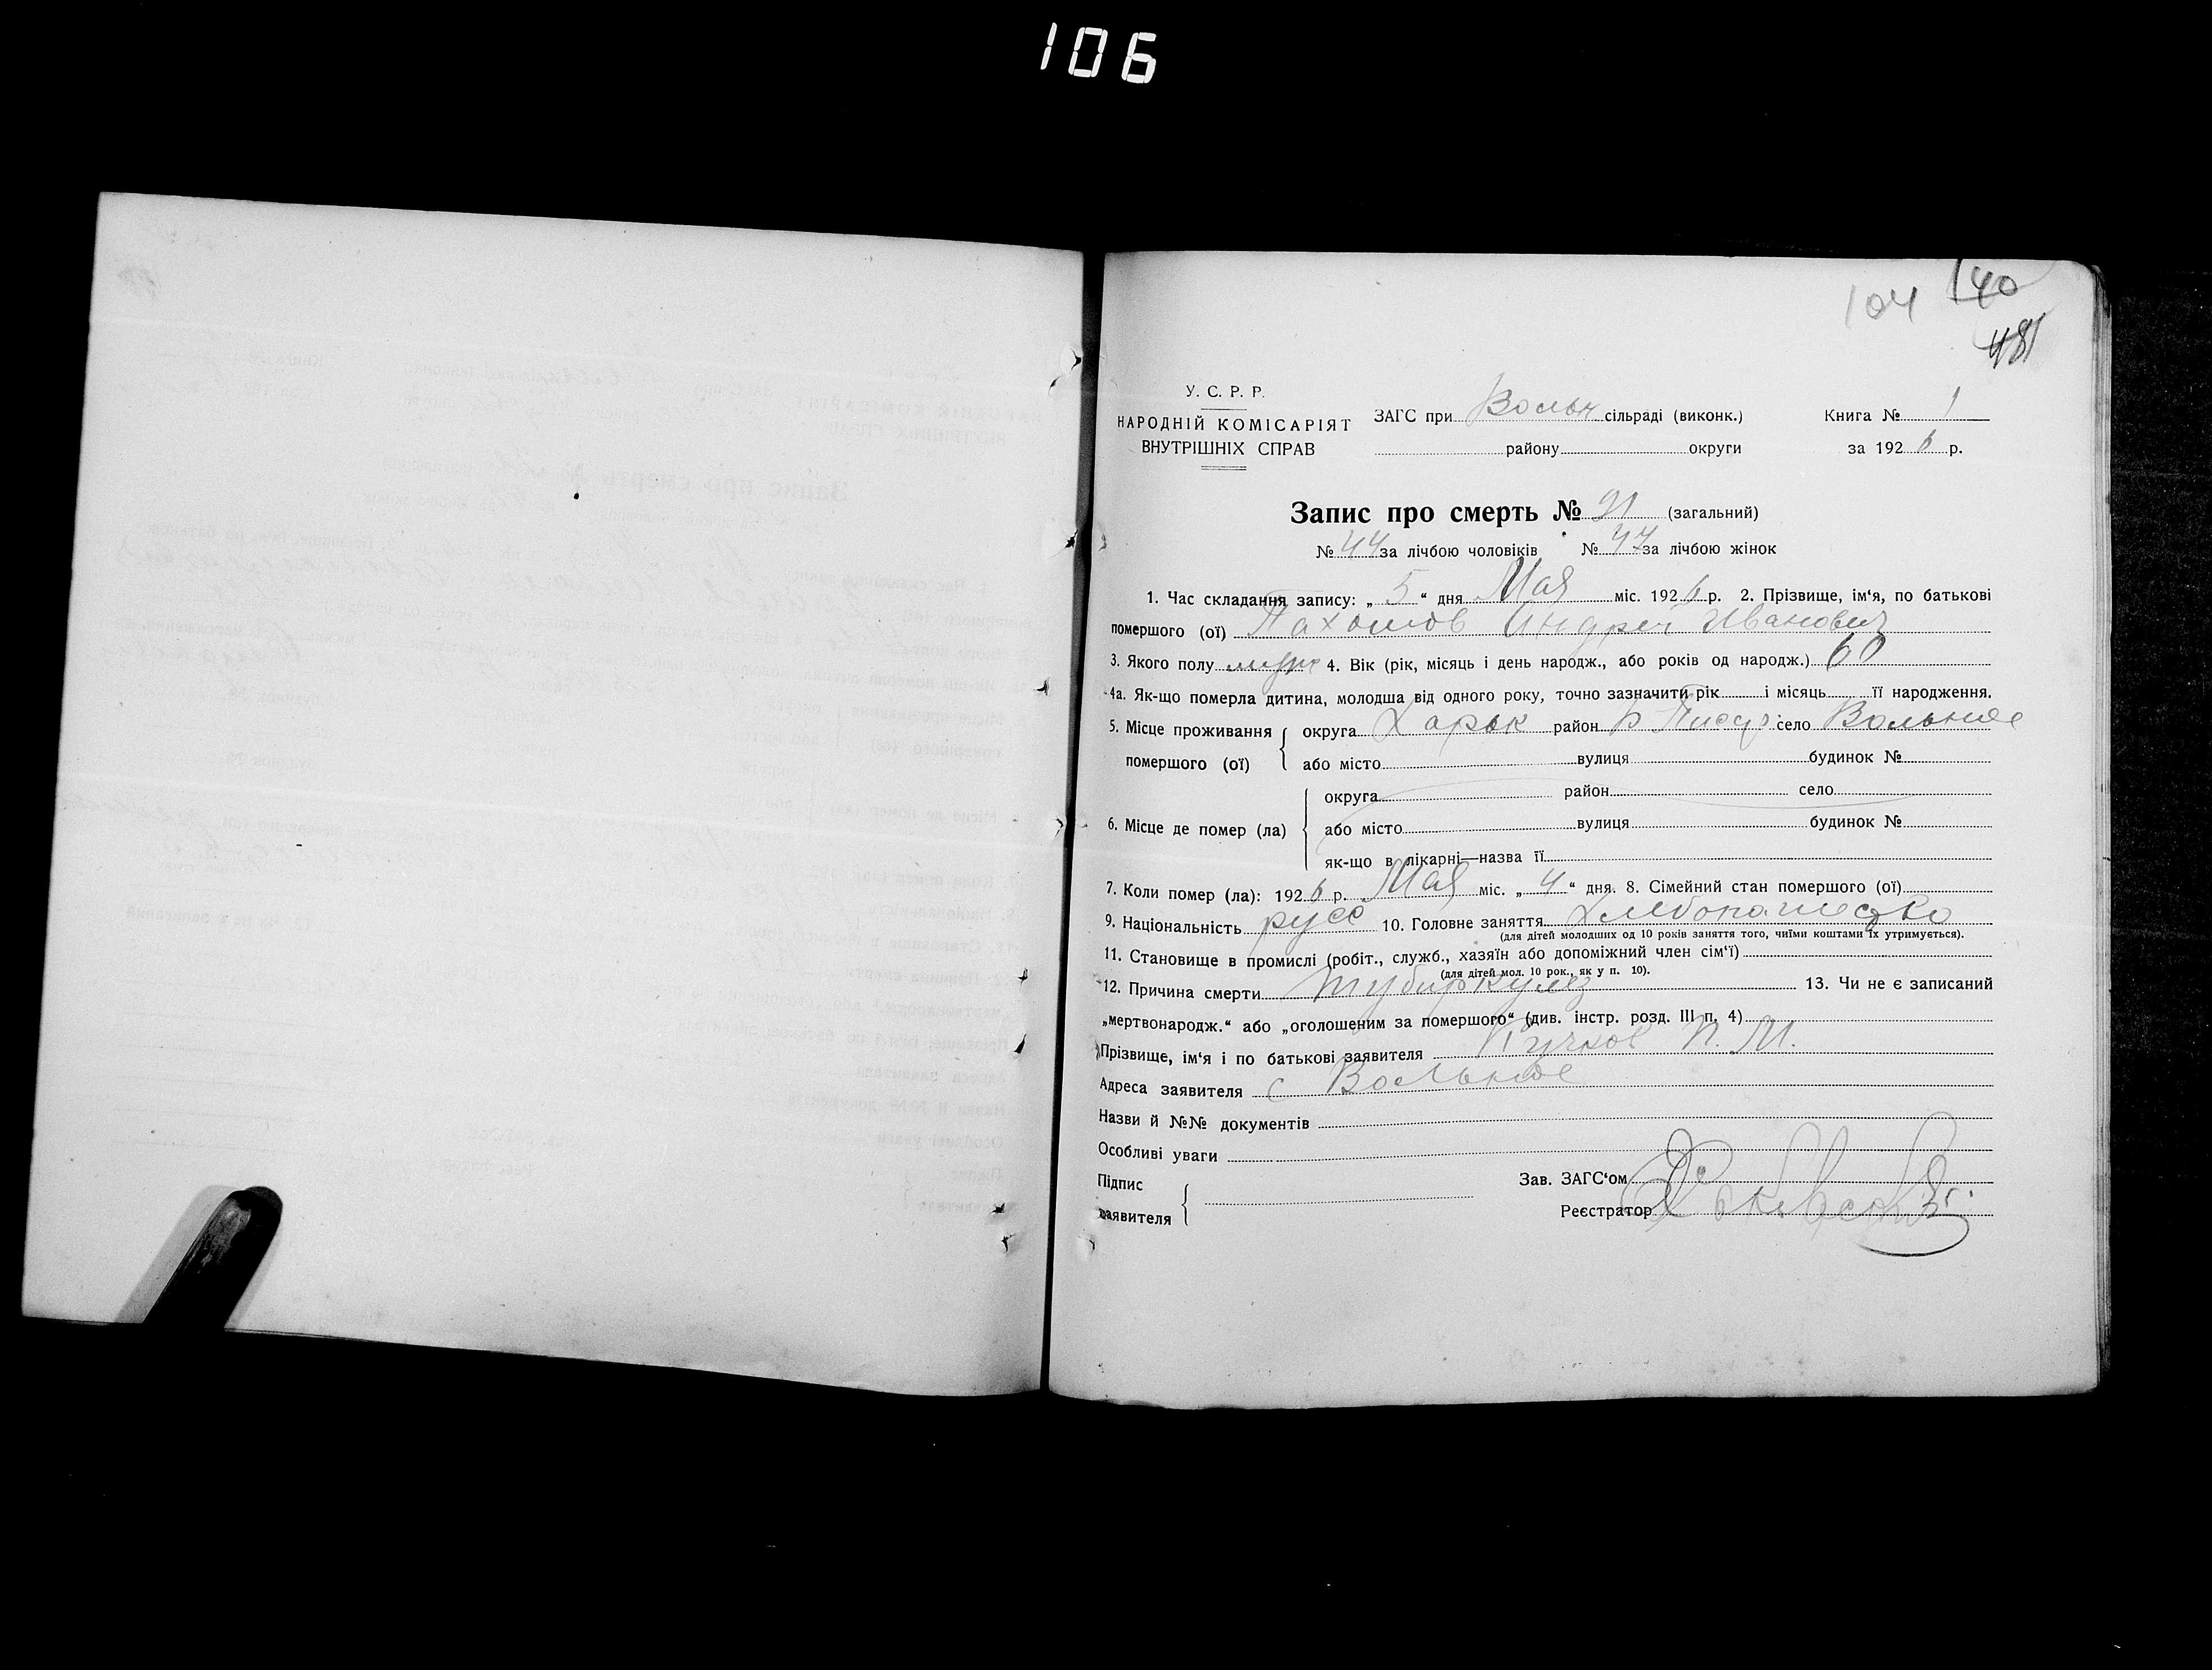 106
104 140
481
У. С. Р. Р.
НАРОДНІЙ КОМІСАРІЯТ
ВНУТРІШНІХ СПРАВ
ЗАГС при Вольн сільраді (виконк.)
району округи
Книга № 1
за 1926 р.
Запис про смерть № 91 (загальний)
№ 44 за лічбою чоловіків № 47 за лічбою жінок
1. Час складання запису: „ 5 “ дня Мая міс. 1926 р. 2. Прізвище, ім‘я, по батькові
помершого (ої) Пахомов Андрей Иванович
3. Якого полу муж 4. Вік (рік, місяць і день народж., або років од народж.) 60
4а. Як-що померла дитина, молодша від одного року, точно зазначити рік і місяць її народження.
5. Місце проживання помершого (ої) округа Харьк район село Вольное
або місто вулиця будинок №
6. Місце де помер (ла) округа район село
або місто вулиця будинок №
як-що в лікарні—назва її
7. Коли помер (ла): 1926 р. Мая міс. „ 4 “ дня. 8. Сімейний стан помершого (ої)
9. Національність русс 10. Головне заняття
(для дітей молодших од 10 років заняття того, чиїми коштами їх утримується).
11. Становище в промислі (робіт., служб., хазяїн або допоміжний член сім‘ї)
(для дітей мол. 10 рок., як у п. 10).
12. Причина смерти тубиркулез 13. Чи не є записаний
„мертвонародж.“ або „оголошеним за помершого“ (див. інстр. розд. III п. 4)
Прізвище, ім‘я і по батькові заявителя П. М.
Адреса заявителя с Вольное
Назви й №№ документів
Особливі уваги
Підпис заявителя
Зав. ЗАГС‘ом
Реєстратор